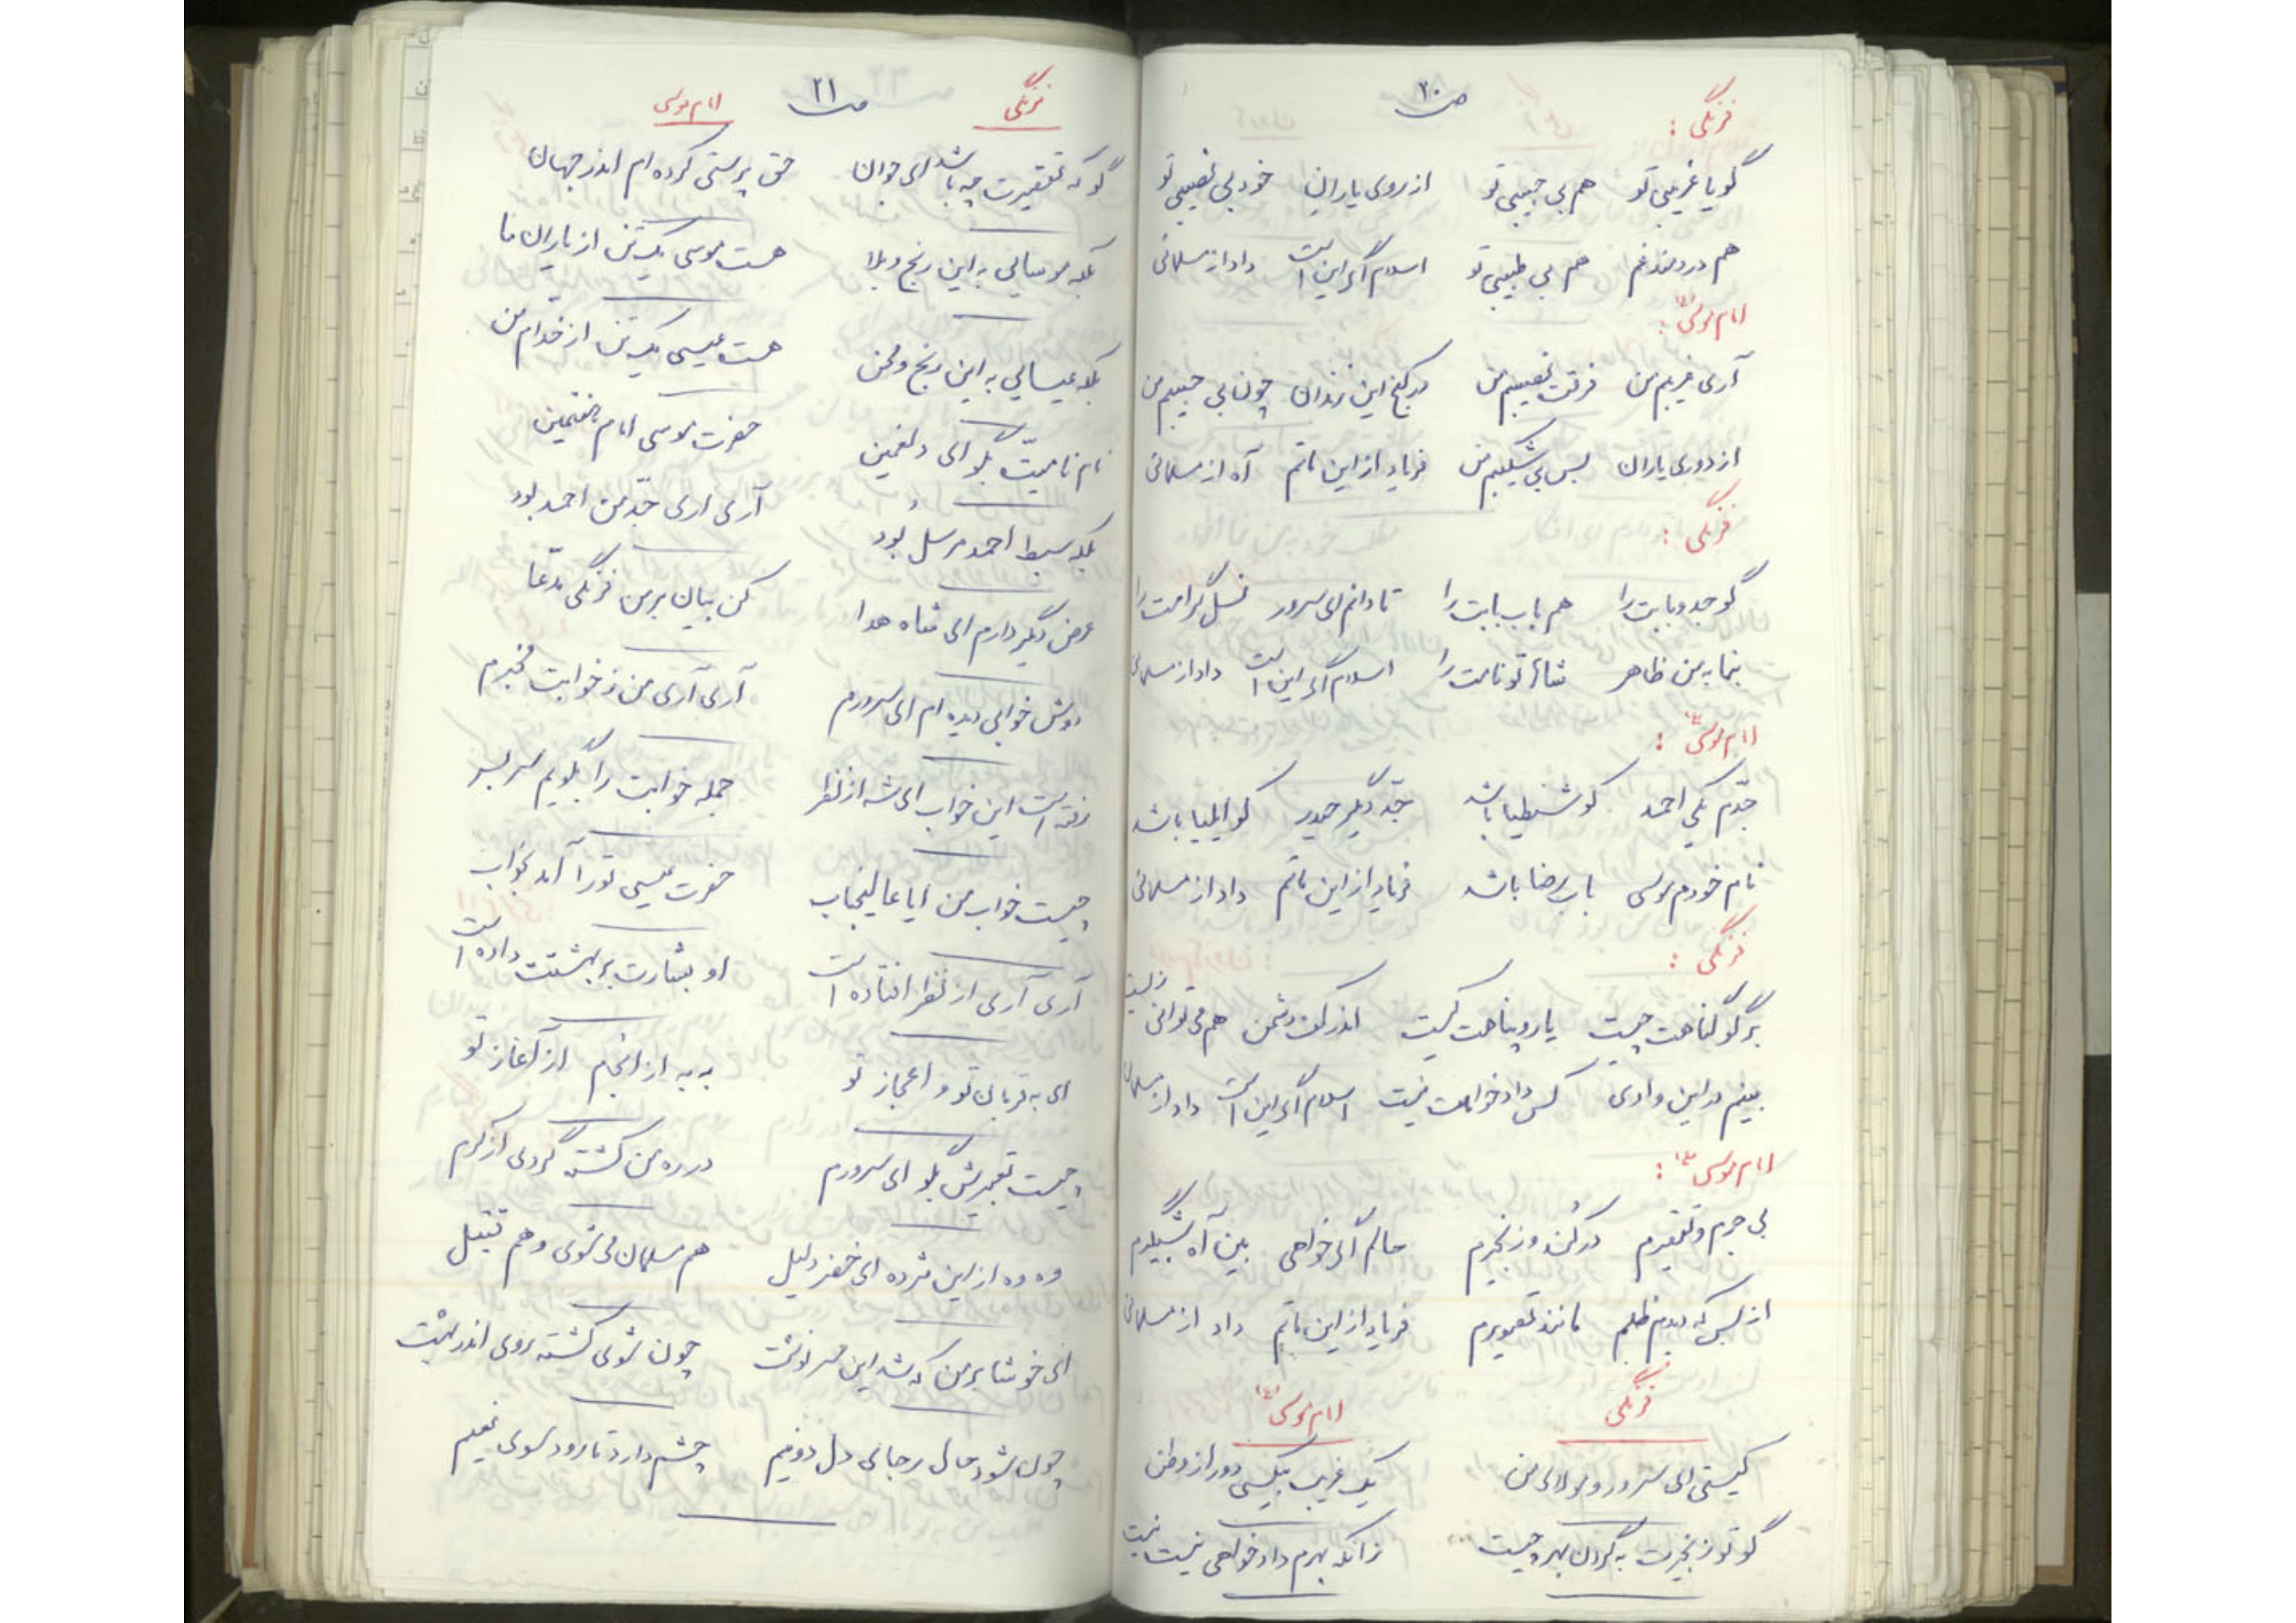 ص ۲۰
فرنگی :
گویا غریبی تو هم بی حبیبی تو از روی یاران خود بی نصیبی تو
هم دردمند غم هم بی طبیبی تو اسلام اگر این است داد از مسلمانی
امام موسی (ع) :
آری غریبم من فرقت نصیبم من در کنج این زندان چون بی حبیبم من
از دوری یاران بس بی شکیبم من فریاد از این ماتم آه از مسلمانی
فرنگی :
گو جد و بابت را هم باب بابت را تا دانم ای سرور نسل گرامت را
بنما به من ظاهر شاها تو نامت را اسلام اگر این است داد از مسلمانی
امام موسی (ع) :
جدّم یکی احمد کو شنطیا باشد جدّ دیگر حیدر کو ایلیا باشد
نام خودم موسی باب رضا باشد فریاد از این ماتم داد از مسلمانی
فرنگی :
برگو گناهت چیست یار و پناهت کیست اندر کف دشمن هم می توانی زیست
بینم در این وادی کس دادخواهت نیست اسلام اگر این است داد از مسلمانی
امام موسی (ع) :
بی جرم و تقصیرم در کُند و زنجیرم حالم اگر خواهی بین آه شبگیرم
از بس که دیدم ظلم مانند تصویرم فریاد از این ماتم داد از مسلمانی
فرنگی امام موسی (ع)
کیستی ای سرور و مولای من یک غریب بیکسی دور از وطن
گو تو زنجیرت به گردن بهر چیست زانکه بهرم دادخواهی نیست نیست
ص ۲۱
فرنگی امام موسی
گو که تقصیرت چه باشد ای جوان حق پرستی کرده ام اندر جهان
بلکه موسائی به این رنج و بلا هست موسی یک تن از یاران ما
بلکه عیسائی به این رنج و محن هست عیسی یک تن از خدام من
نام نامیّت بگو ای دلغمین حضرت موسی امام هفتمین
بلکه سبط احمد مرسل بُود آری اری جدّ من احمد بود
عرض دیگر دارم ای شاه هدا کن بیان بر من فرنگی مدّعا
دوش خوابی دیده ام ای سرورم آری آری من ز خوابت مخبرم
رفته است این خواب ای شه از نظر جمله خوابت را بگویم سر بسر
چیست خواب من ایا عالیجناب حضرت عیسی تو را آمد بخواب
آری آری از نظر افتاده است او بشارت بر بهشتت داده است
ای به قربان تو و اعجاز تو به به از انجام از آغاز تو
چیست تعبیرش بگو ای سرورم در ره من کشته گردی از کرم
وه وه از این مژده ای خضر دلیل هم مسلمان می شوی و هم قتیل
ای خوشا بر من که شد این سرنوشت چون شوی کشته روی اندر بهشت
چون شود حال رجائی دل دو نیم چشم دارد تا رود سوی نعیم